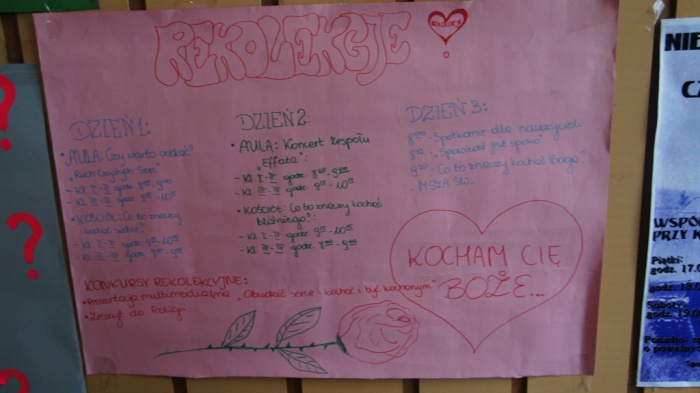 REKOLEKCJE
DZIEŃ 1:
• AULA: Czy warto czekać?
"Ruch Czystych Serc"
- Kl. I - II godz. 8⁰⁰ - 9⁰⁰
- Kl. III - IV godz. 9⁰⁰ - 10⁰⁰
• KOŚCIÓŁ: Co to znaczy
kochać siebie?
- Kl. I - II godz. 9⁰⁰ - 10⁰⁰
- Kl. III - IV godz. 8⁰⁰ - 9⁰⁰
DZIEŃ 2:
• AULA: Koncert zespołu
"Effata":
- Kl. I - II godz. 8⁰⁰ - 9⁰⁰
- Kl. III - IV godz. 9⁰⁰ - 10⁰⁰
• KOŚCIÓŁ: Co to znaczy kochać
bliźniego?:
- Kl. I - II godz. 9⁰⁰ - 10⁰⁰
- Kl. III - IV godz. 8⁰⁰ - 9⁰⁰
DZIEŃ 3:
8⁰⁰ - Spotkanie dla nauczycieli
"Spowiedź jest spoko"
9⁰⁰ - Co to znaczy kochać Boga?
- MSZA ŚW.
KONKURSY REKOLEKCYJNE:
• Prezentacja multimedialna serce - kochać i być kochanym"
• Zeszyt do Religii
KOCHAM CIĘ
BOŻE...
NIE
WSPÓ
PRZY K
Piątki:
godz. 17.0
godz. 18.0
Sobot
godz. 19.0
Ponadto